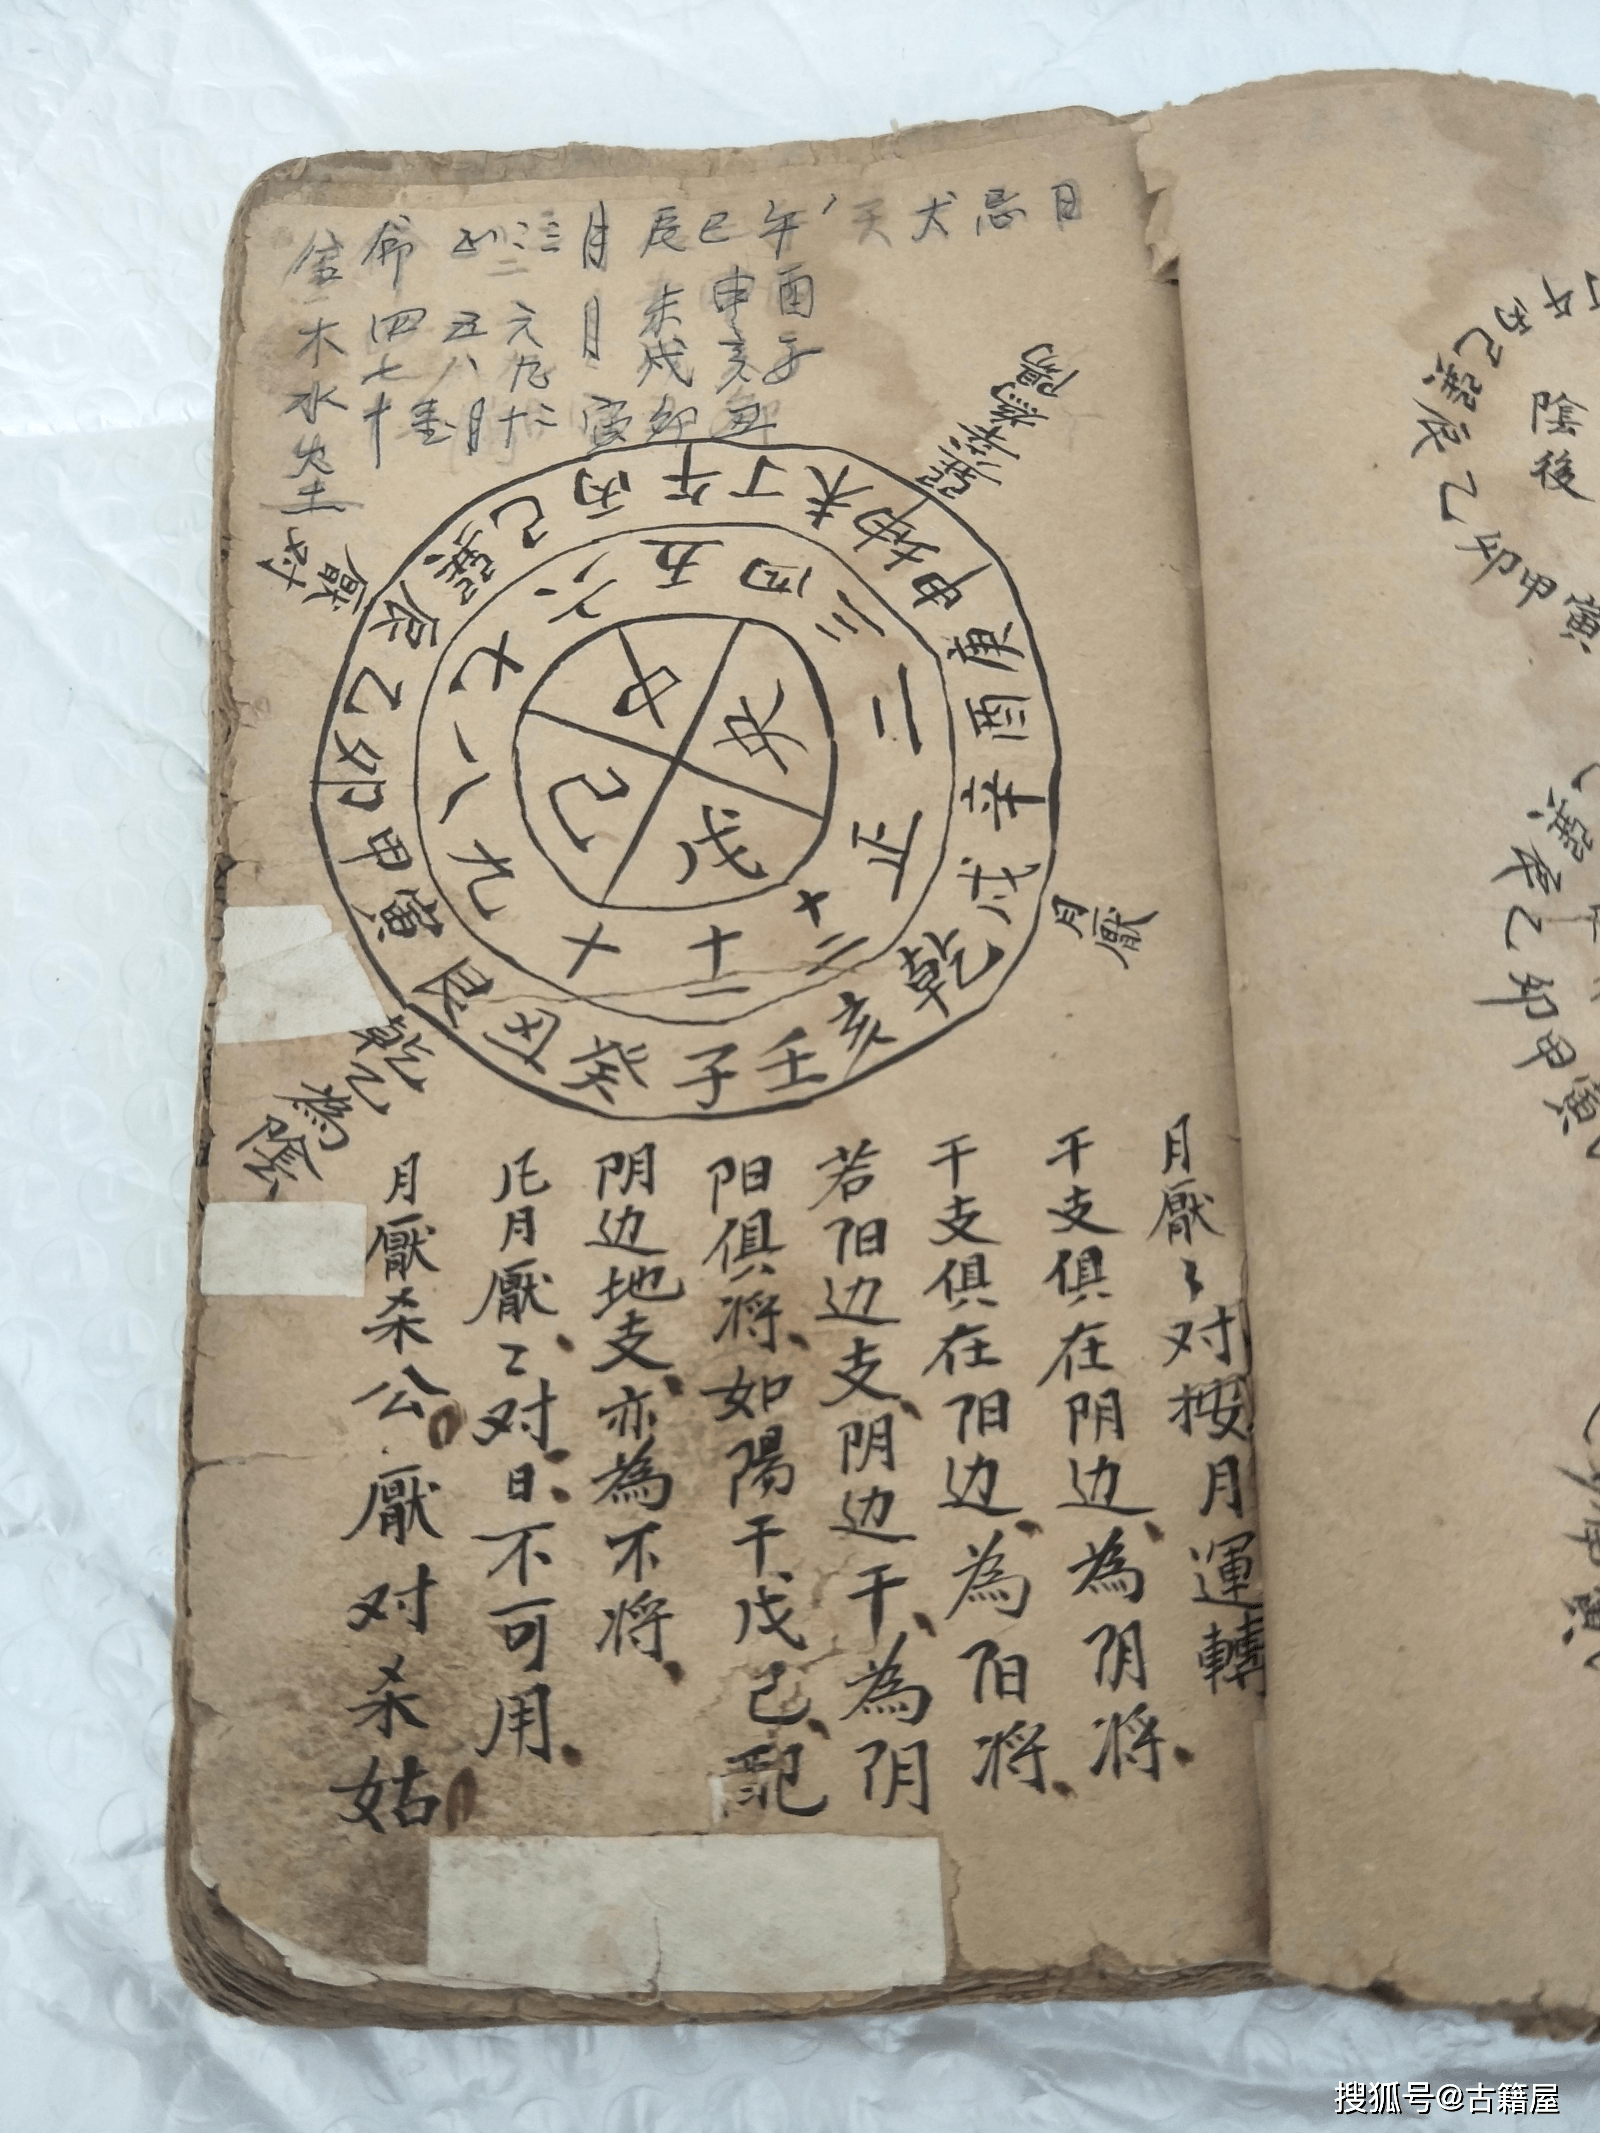 天犬忌日
命正二三月辰巳午
木四五六月未申酉
水七八九 戌亥子
十 月十二寅卯丑
巽辛為陽
厭对
月厭
乾乙為陰
巽己丙午丁未坤申庚酉辛戌乾亥壬子癸丑艮寅甲卯乙辰
正二三四五六七八九十十一十二
中
戊
己
月厭〻对按月運轉
干支俱在阴边、為阴将、
干支俱在阳边、為阳将、
若阳边支、阴边干、為阴
阳俱将、如陽干、戊己、配
阴边地支、亦為不将、
凡月厭〻对、日、不可用、
月厭杀公 厭对杀姑
陰後
辰乙卯甲寅
辰乙卯甲寅
搜狐号@古籍屋